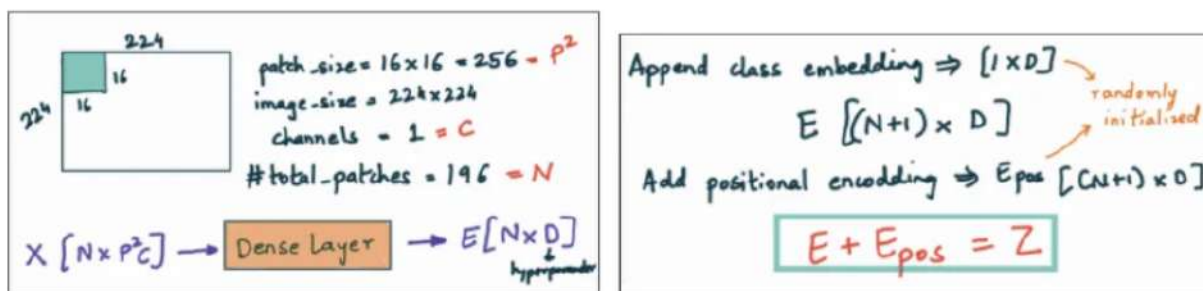 224
224
16
16
patch_size = 16 x 16 = 256 = P²
image_size = 224x224
channels = 1 = C
#total_patches = 196 = N
X [N x P²C] → Dense Layer → E[N x D]
hyperparameter
Append class embedding ⇒ [1 x D]
randomly
initialized
E [(N+1) x D]
Add positional encodding ⇒ Epos [(N+1) x D]
E + Epos = Z